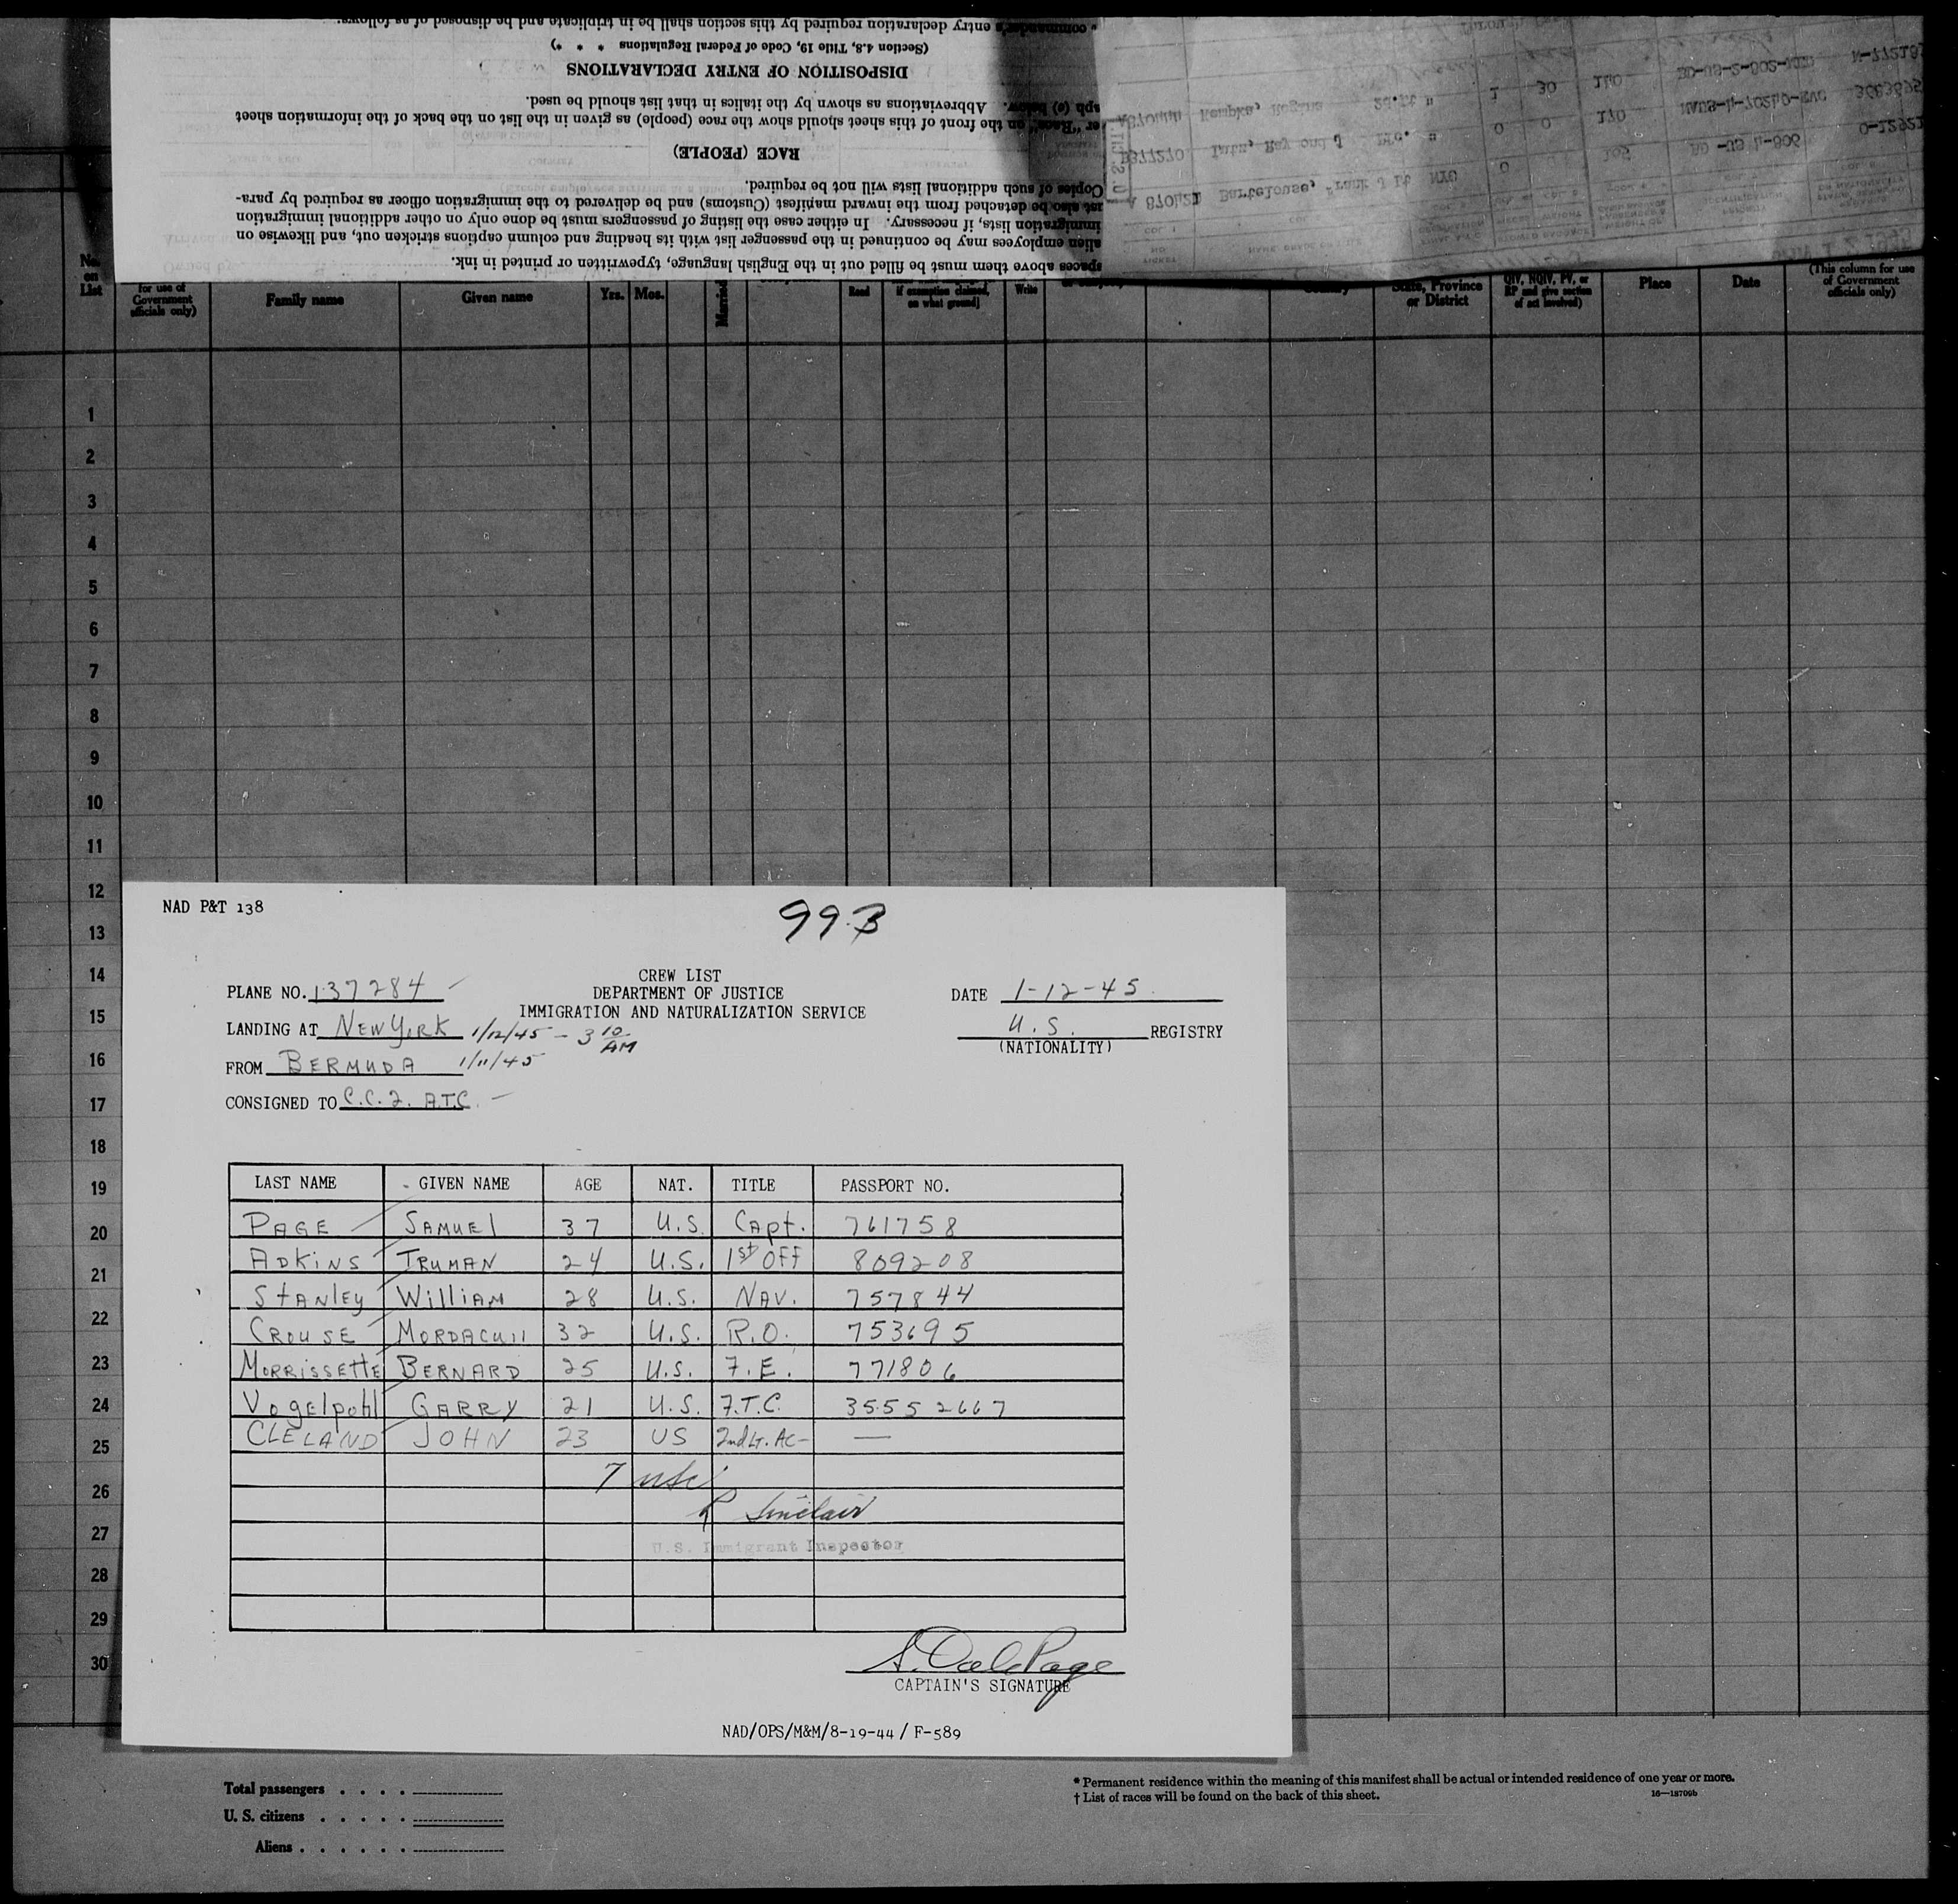 * commander's entry declaration required by this section shall be in triplicate and be disposed of as follows:
(Section 4.8, Title 19, Code of Federal Regulations * * *)
DISPOSITION OF ENTRY DECLARATIONS
aph (e) below. Abbreviations as shown by the italics in that list should be used.
er "Race" on the front of this sheet should show the race (people) as given in the list on the back of the information sheet
RACE (PEOPLE)
Copies of such additional lists will not be required.
ust also be detached from the inward manifest (Customs) and be delivered to the immigration officer as required by para-
immigration lists, if necessary. In either case the listing of passengers must be done only on other additional immigration
alien employees may be continued in the passenger list with its heading and column captions stricken out, and likewise on
spaces above them must be filled out in the English language, typewritten or printed in ink.
No. on List
for use of Government officials only)
Family name
Given name
Yrs. Mos.
Married
Read
if exemption claimed, on what ground]
Write
Country
State, Province or District
QIV, NQIV, PV, or RP and give section of act involved)
Place
Date
(This column for use of Government officials only)
1
2
3
4
5
6
7
8
9
10
11
12
13
14
15
16
17
18
19
20
21
22
23
24
25
26
27
28
29
30
NAD P&T 138
993
CREW LIST
DEPARTMENT OF JUSTICE
IMMIGRATION AND NATURALIZATION SERVICE
PLANE NO. 137284
DATE 1-12-45
LANDING AT NEW YORK 1/12/45 - 3 10 AM
U.S. REGISTRY
(NATIONALITY)
FROM BERMUDA 1/11/45
CONSIGNED TO C.C.2. A.T.C.
LAST NAME GIVEN NAME AGE NAT. TITLE PASSPORT NO.
PAGE SAMUEL 37 U.S. Capt. 761758
ADKINS TRUMAN 24 U.S. 1st OFF 809208
STANLEY WILLIAM 28 U.S. NAV. 757844
CROUSE MORDACUII 32 U.S. R.O. 753695
MORRISSETTE BERNARD 25 U.S. F.E. 771806
VOGELPOHL GARRY 21 U.S. F.T.C. 35552667
CLELAND JOHN 23 US 2nd Lt. AC- —
7 USC
R Sinclair
U.S. Immigrant Inspector
S. Dale Page
CAPTAIN'S SIGNATURE
NAD/OPS/M&M/8-19-44 / F-589
Total passengers . . . .
U. S. citizens . . . . .
Aliens . . . . . .
* Permanent residence within the meaning of this manifest shall be actual or intended residence of one year or more.
† List of races will be found on the back of this sheet.
16—18709b